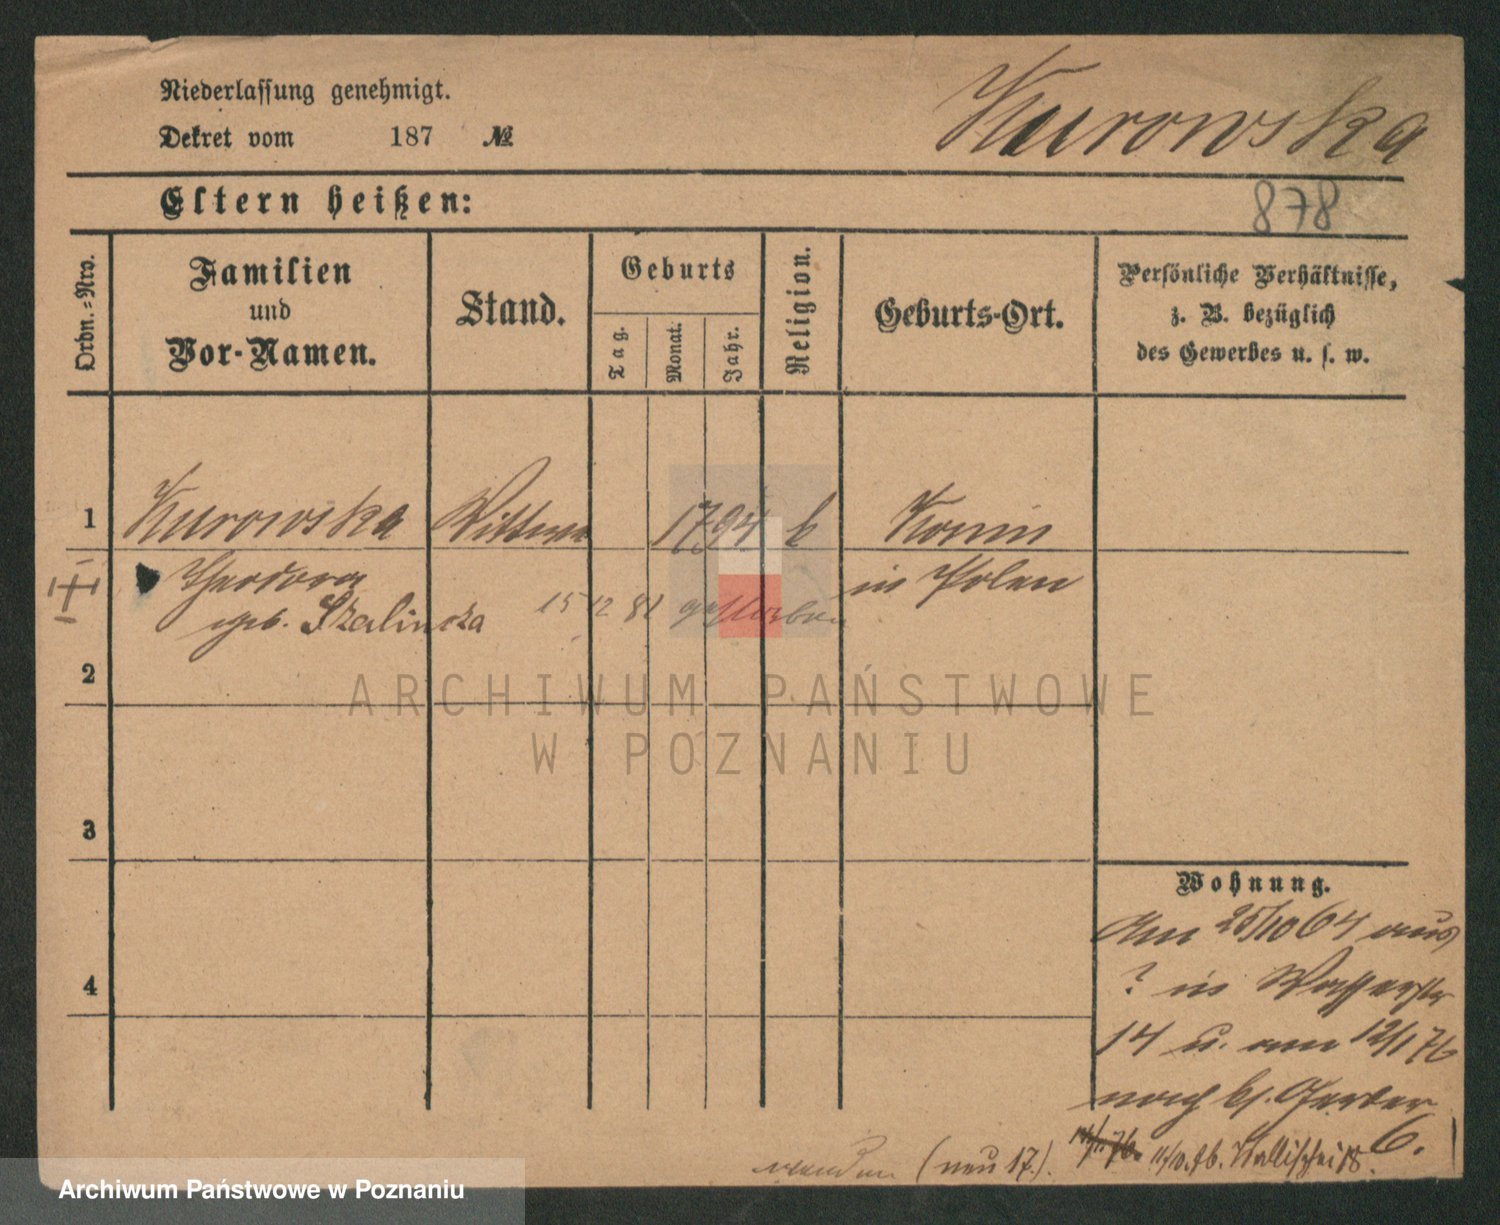 Niederlassung genehmigt.
Dekret vom 187 №
Kurowska
Eltern heißen:
878
Ordn.-Nro.
Familien
und
Vor-Namen.
Stand.
Geburts
Tag.
Monat.
Jahr.
Religion.
Geburts-Ort.
Persönliche Verhältnisse,
z. B. bezüglich
des Gewerbes u. s. w.
1 Kurowska Wittwe 1794 k Konin
Theodora in Polen
geb. Szalinska 15 12 81 gestorben
2
ARCHIWUM PAŃSTWOWE
W POZNANIU
3
4
Wohnung.
Am 25/10 64 aus
? in Wasserstr
14 u. am 12/1 76
nach kl. Gerber
6.
(neu 17.). 11/10. 76. Wallischei
Archiwum Państwowe w Poznaniu